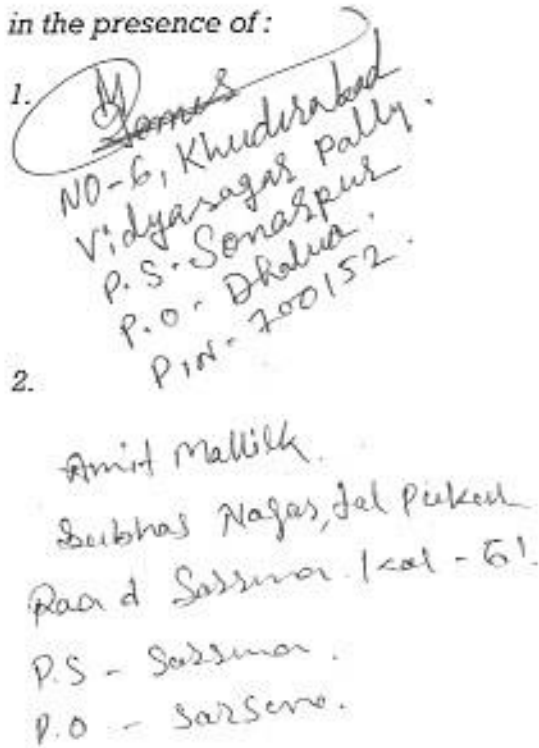 in the presence of :
1.
NO-6, Khudirabad
Vidyasagar Pally.
P.S. Sonarpur
P.O. Dhalua.
PIN- 700152.
2.
Amit Mallilk.
Subhas Nagar, Jal Pukur
Road Sarsuna. Kol - 61.
P.S - Sarsuna.
P.O - Sarsuna.